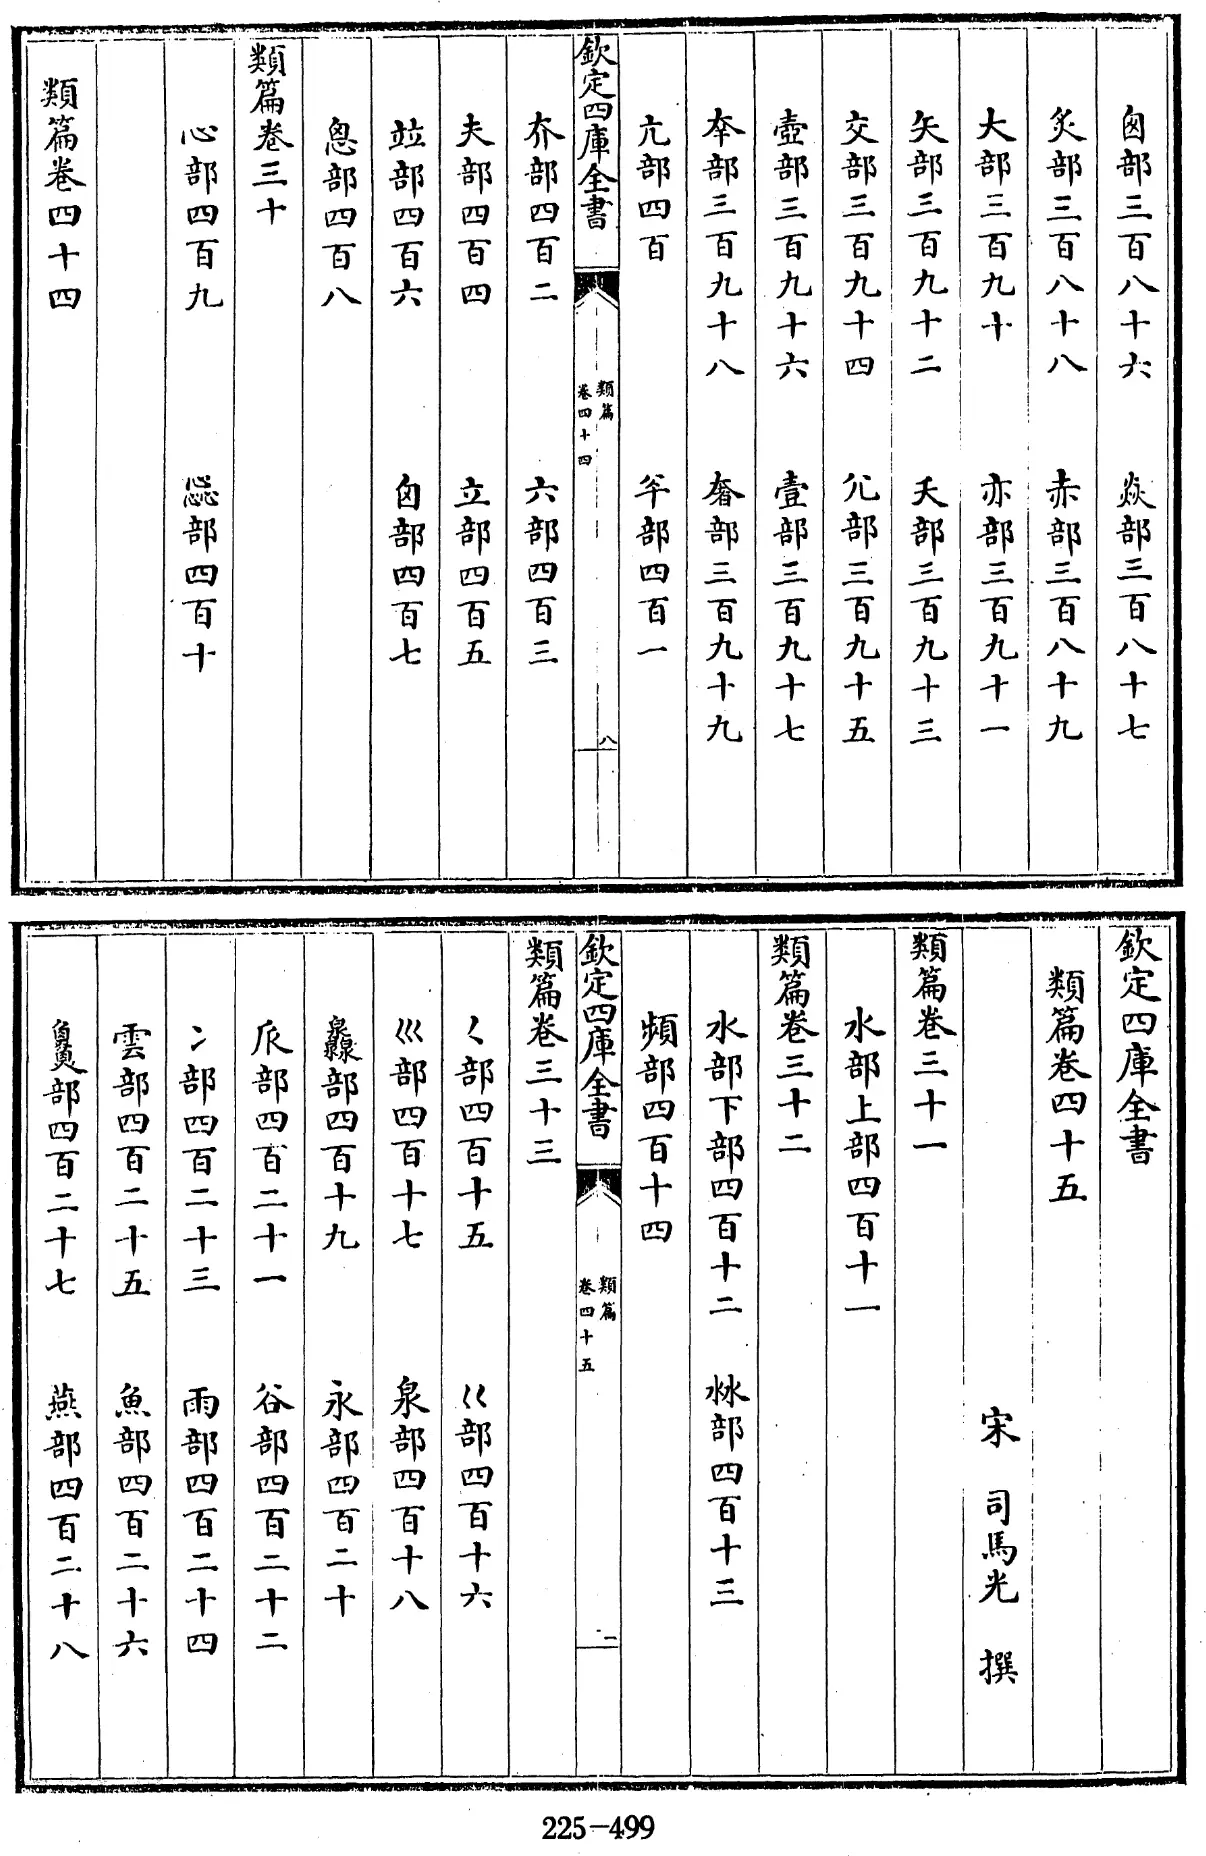 囪部三百八十六　焱部三百八十七
炙部三百八十八　赤部三百八十九
大部三百九十　亦部三百九十一
矢部三百九十二　夭部三百九十三
交部三百九十四　尣部三百九十五
壺部三百九十六　壹部三百九十七
㚔部三百九十八　奢部三百九十九
亢部四百　夲部四百一
欽定四庫全書
類篇
卷四十四
八
夰部四百二　六部四百三
夫部四百四　立部四百五
竝部四百六　囟部四百七
恖部四百八
類篇卷三十
心部四百九　惢部四百十
類篇卷四十四
欽定四庫全書
類篇卷四十五
宋　司馬光　撰
類篇卷三十一
水部上部四百十一
類篇卷三十二
水部下部四百十二　沝部四百十三
頻部四百十四
欽定四庫全書
類篇
卷四十五
一
類篇卷三十三
𡿨部四百十五　巜部四百十六
巛部四百十七　泉部四百十八
灥部四百十九　永部四百二十
𠂢部四百二十一　谷部四百二十二
冫部四百二十三　雨部四百二十四
雲部四百二十五　魚部四百二十六
䲆部四百二十七　燕部四百二十八
225-499